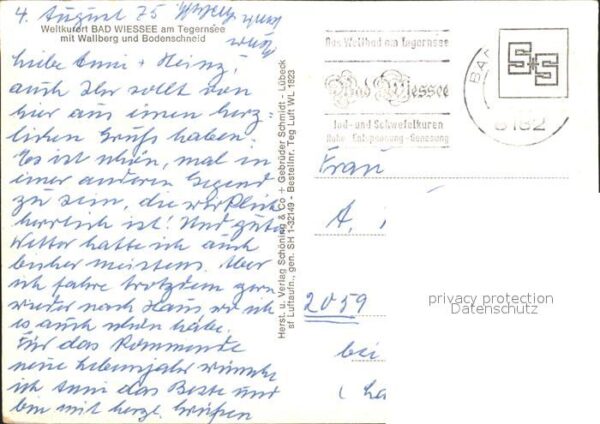 4. August 75
Weltkurort BAD WIESSEE am Tegernsee
mit Wallberg und Bodenschneid
Liebe Anni + Heinz,
auch Ihr sollt von
hier aus einen herz-
lichen Gruß haben.
Es ist schön, mal in
einer anderen Gegend
zu sein, die wirklich
herrlich ist! Und gutes
Wetter hatte ich auch
bisher meistens. Aber
ich fahre trotzdem gern
wieder nach Haus, wo ich
es auch schön habe.
Für das kommende
neue Lebensjahr wünsche
ich Anni das Beste und
bin mit herzl. Grüßen
Herst. u. Verlag Schöning & Co + Gebrüder Schmidt - Lübeck
st Luftaufn., gen. SH 1-32149 - Bestellnr. Teg Luft WL 1823
Das Weltbad am Tegernsee
Bad Wiessee
Jod- und Schwefelkuren
Ruhe - Entspannung - Genesung
BA
8182
S+S
Frau
A.
2059
bei
(La
privacy protection
Datenschutz